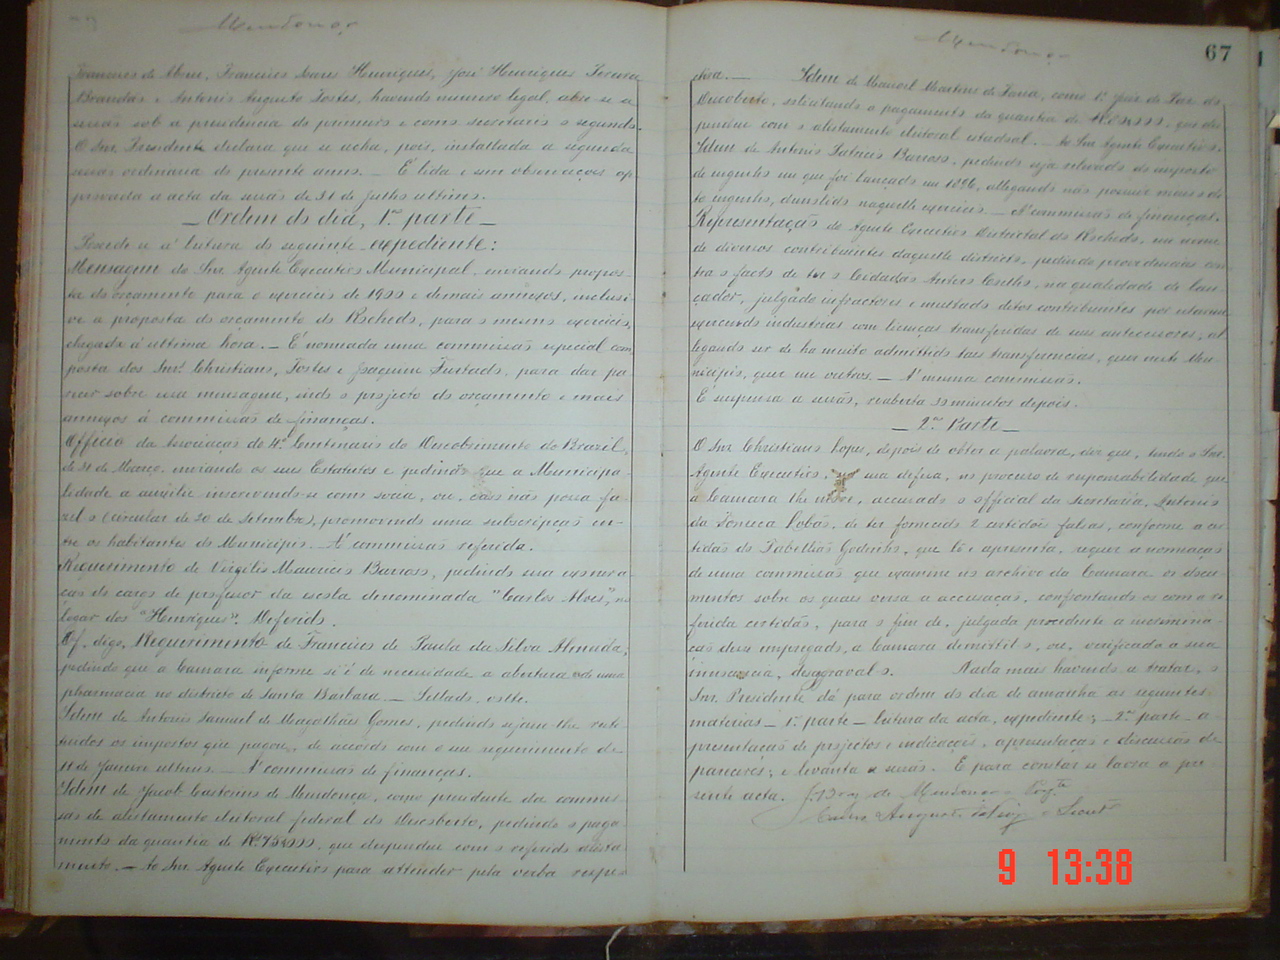 Mendonça
Francisco de Abreu, Francisco Soares Henriques, José Henriques Pereira
Brandão e Antonio Augusto Fortes, havendo numero legal, abre-se a
sessão sob a presidencia do primeiro e como secretario o segundo.
O Snr. Presidente declara que se acha, pois, installada a segunda
sessão ordinaria do presente anno. — É lida e sem observações ap
provada a acta da sessão de 31 de Julho ultimo.
— Ordem do dia, 1ª parte —
Procede-se á leitura do seguinte expediente:
Mensagem do Snr. Agente Executivo Municipal, enviando propos-
ta do orçamento para o exercicio de 1900 e demais annexos, inclusi-
ve a proposta do orçamento do Rochedo, para o mesmo exercicio,
chegada á ultima hora. — É nomeada uma commissão especial com
posta dos Snrs. Christiano, Fortes e Joaquim Furtado, para dar pa-
recer sobre essa mensagem, indo o projecto do orçamento e mais
annexos á commissão de finanças.
Officio da Associação do 4º Centenario do Descobrimento do Brazil,
de 31 de Março, enviando os seus Estatutos e pedindo que a Municipa-
lidade a auxilie inscrevendo-se como socia, ou, caso não possa fa-
zel-o (circular de 20 de Setembro), promovendo uma subscripção en-
tre os habitantes do Municipio. — Á commissão referida.
Requerimento de Virgilio Mauricio Barroso, pedindo sua exonera-
ção do cargo de professor da escola denominada "Carlos Alves", no
logar dos "Henriques". Deferido.
Of, digo, Requerimento de Francisco de Paula da Silva Almada,
pedindo que a Camara informe si é de necessidade a abertura de uma
pharmacia no districto de Santa Barbara. — Sellado, volte.
Idem de Antonio Samuel de Magalhães Gomes, pedindo sejam-lhe resti-
tuidos os impostos que pagou, de accordo com o seu requerimento de
11 de Janeiro ultimo. — Á commissão de finanças.
Idem de Jacob Caetano de Mendonça, como presidente da commis-
são de alistamento eleitoral federal do Descoberto, pedindo o paga-
mento da quantia de que dependeu com o referido alista-
mento. — Ao Snr. Agente Executivo para attender pela verba respe-
Mendonça
67
ctiva. — Idem de Manoel Martins de Faria, como 1º Juiz de Paz do
Descoberto, solicitando o pagamento da quantia de que des-
pendeu com o alistamento eleitoral estadual. — Ao Snr. Agente Executivo.
Idem de Antonio Patricio Barroso, pedindo seja relevado do imposto
de engenho em que foi lançado em 1896, allegando não possuir mais o di-
to engenho, demolido naquelle exercicio. — Á commissão de finanças.
Representação do Agente Executivo Districtal do Rochedo, em nome
de diversos contribuintes daquelle districto, pedindo providencias con-
tra o facto de ter o Cidadão Antero Coelho, na qualidade de lan-
çador, julgado infractores e multado ditos contribuintes por estarem
exercendo industrias com licenças transferidas de seus antecessores, al
legando ser de ha muito admittido taes transferencias, quer neste Mu-
nicipio, quer em outros. — Á mesma commissão.
É suspensa a sessão, reaberta 30 minutos depois.
— 2ª Parte —
O Snr. Christiano Lopes, depois de obter a palavra, diz que, tendo o Snr.
Agente Executivo, em sua defesa, no processo de responsabilidade que
a Camara lhe move, accusado o official da Secretaria, Antonio
da Fonseca Lobão, de ter fornecido 2 certidões falsas, conforme a cer
tidão do Tabellião Godinho, que lê e apresenta, requer a nomeação
de uma commissão que examine no archivo da Camara os docu-
mentos sobre os quaes versa a accusação, confrontando-os com a re
ferida certidão, para o fim de, julgada procedente a incrimina-
ção desse empregado, a Camara demittil-o, ou, verificada a sua
innocencia, desaggraval-o. Nada mais havendo a tratar, o
Snr. Presidente dá para ordem do dia de amanhã as seguintes
materias — 1ª parte — leitura da acta, expediente; — 2ª parte — a
presentação de projectos e indicações, apresentação e discussão de
pareceres; e levanta a sessão. E para constar se lavra a pre-
sente acta. J. Braz de Mendonça
Augusto
9 13:38